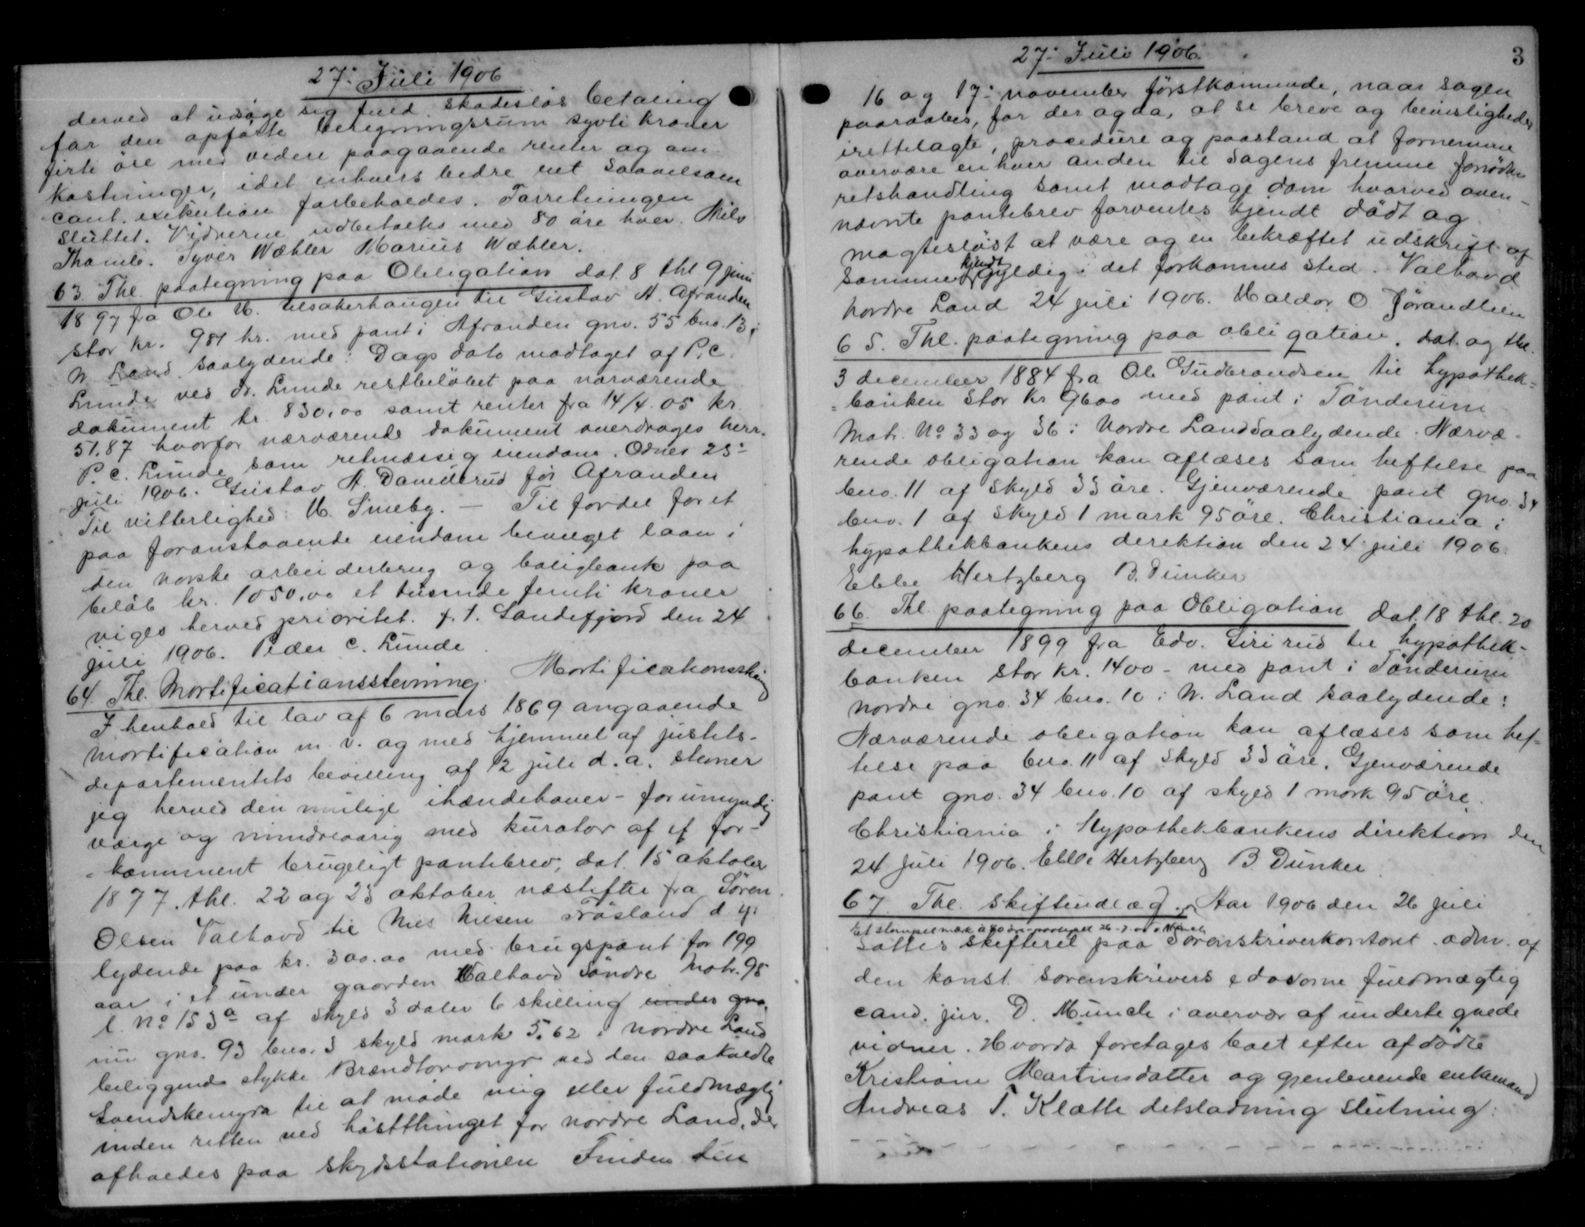 27. Juli 1906
derved at udsøge sig fuld skadesløs betaling
for den opførte beregningssum syvti kroner
firti øre med videre paagaaende renter og om
kostninger, idet enhvers bedre ret saavelsom
cont. exekution forbeholdes. Forretningen
sluttet. Vidnerne udbetaltes med 80 øre hver. Nils
Thomle. Syver Wæhler Marius Wæhler.
63. Thl. paategning paa Obligation dat 8 thl 9 juni
1897 fra Ole M. til Gustav A. Afranden
stor kr. 981 kr. med pant i Afranden gno. 55 bno. 13 i
N. Land saalydende: Dags dato modtaget af P. C.
Lunde ved Dr. Lunde restbeløbet paa nærværende
dokument kr. 830,00 samt renter fra 14/4. 05 kr.
51.87 hvorfor nærværende dokument overdrages herr.
P. C. Lunde som retmæssig eiendom. Odnes 25-
juli 1906. Gustav A. Damiterud før Afranden
Til vitterlighed: M. Smeby. — Til fordel for et
paa foranstaaende eiendom bevilget laan i
den norske arbeiderbrug og boligbank paa
beløb kr. 1050,00 et tusinde femti kroner
viges herved prioritet. p. t. Sandefjord den 24
juli 1906. Peder C. Lunde
64. Thl. Mortificationsstevning. Mortifications
I henhold til lov af 6 mars 1869 angaaende
mortification m. v. og med hjemmel af justits-
departementets bevilling af 12 juli d. a. stevner
jeg herved den mulige ihændehaver - for umyndig
værge og mindreaarig med kurator af et for-
kommment brugeligt pantebrev, dat. 15 oktober
1877. thl. 22 og 23 oktober næstefter fra Søren
Olsen Valhovd til Nils Nilsen Frøsland d. y.
lydende paa kr. 300.00 med brugspant for 199
aar i et under gaarden Valhovd søndre Matr. 95
l. No 153a af skyld 3 daler 6 skilling under gno.
nu gno. 93 bno. 3 skyld mark 5.62 i nordre Land
beliggende stykke Brændtorvmyr ved den saakaldte
Svendskemyra til at møde mig eller fuldmægtig
inden retten ved høstthinget for nordre Land, der
afholdes paa skydsstationen Finden den
27. Juli 1906. 3
16 og 17. november førstkommende, naar sagen
paaraabes, for der ogaa, at se breve og bevisligheder
irettelagte, procedure og paastand at fornemme
overvære enhver anden til sagens fremme fornøden
retshandling samt modtage dom hvorved oven-
nævnte pantebrev forventes kjendt dødt og
magtesløst at være og en bekræftet udskrift af
samme kjendt gyldig i det forkomnes sted. Valhovd
nordre Land 24 juli 1906. Haldor O Jørandlien
65. Thl. paategning paa obligation. dat. og thl.
3 december 1884 fra Ole Gudbrandsen til hypothek-
banken stor kr 9600 med pant i Tønderum
Matr. No 33 og 36 i Nordre Land saalydende: Nærvæ-
rende obligation kan aflæses som heftelse paa
bno. 11 af skyld 33 øre. Gjenværende pant gno. 34
bno. 1 af skyld 1 mark 95 øre. Christiania i
hypothekbankens direktion den 24 juli 1906.
Ebbe Hertzberg B. Dunker
66. Thl. paategning paa Obligation dat. 18 thl. 20
december 1899 fra Edv. Sirirud til hypothek-
banken stor kr. 1400 - med pant i Tønderum
nordre gno. 34 bno. 10 i N. Land saalydende:
Nærværende obligation kan aflæses som hef-
telse paa bno. 11 af skyld 33 øre. Gjenværende
pant gno. 34 bno. 10 af skyld 1 mark 95 øre.
Christiania i Hypothekbankens direktion den
24 juli 1906. Ebbe Hertzberg B. Dunker
67. Thl. skifteudlæg. Aar 1906 den 26 juli
Et stempelmærk à
sattes skifteret paa Sorenskriverkontoret adm. af
den konst. sorenskrivers edsvorne fuldmægtig
cand. jur. D. Munch i overvær af undertegnede
vidner. Hvorda foretages boet efter afdøde
Kristiane Martinsdatter og gjenlevende enkemand
Andreas T. Klætte detsladning slutning: